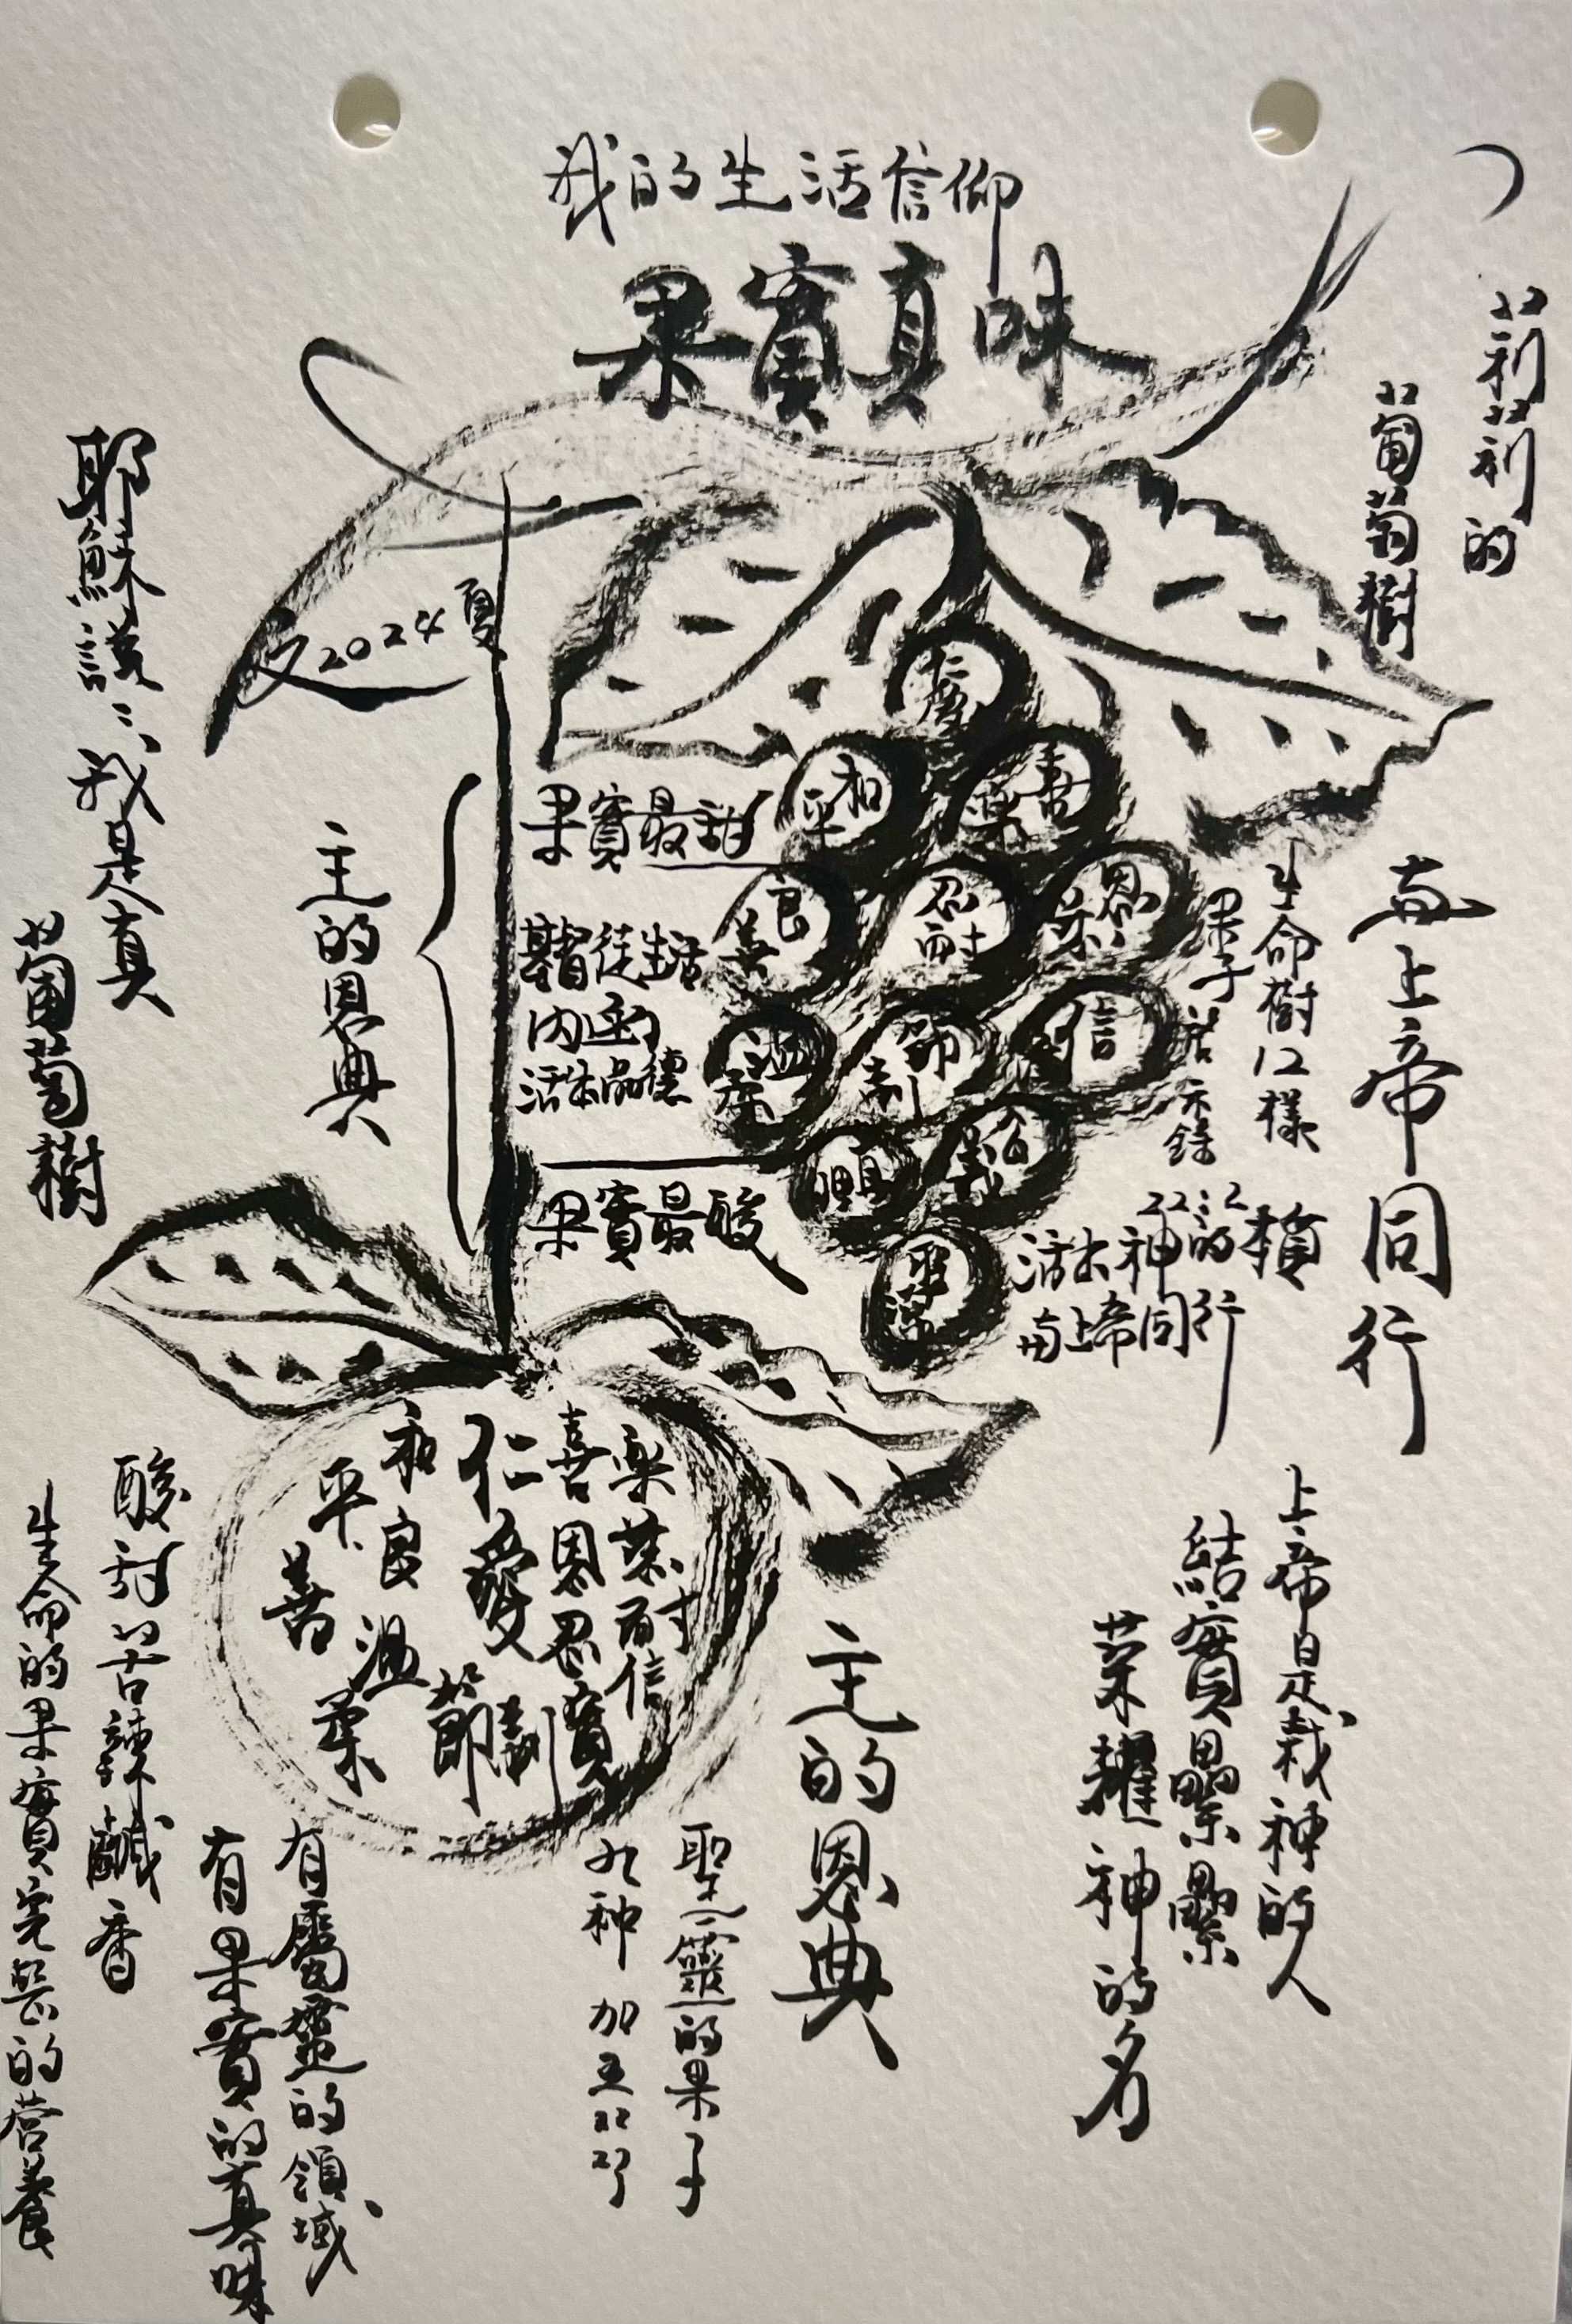 我的生活信仰
果實真味
莉莉的
葡萄樹
文2024夏
耶穌說：我是真
葡萄樹
主的恩典
果實最甜
基督徒生活
內涵的
活出品德
果實最酸
仁愛
和平
喜樂
良善
忍耐
恩慈
溫柔
節制
信實
公義
聖潔
生命樹12樣
果子 啟示錄
22:2
活出神的
與上帝同行
與上帝同行
上帝是栽神的人
結實纍纍
榮耀神的名
主的恩典
仁愛
喜樂
和平
恩慈
忍耐
良善
信實
溫柔
節制
聖靈的果子
九种 加五22
23
有屬靈的領域
有果實的真味
酸甜苦辣鹹香
生命的果實完整的營養